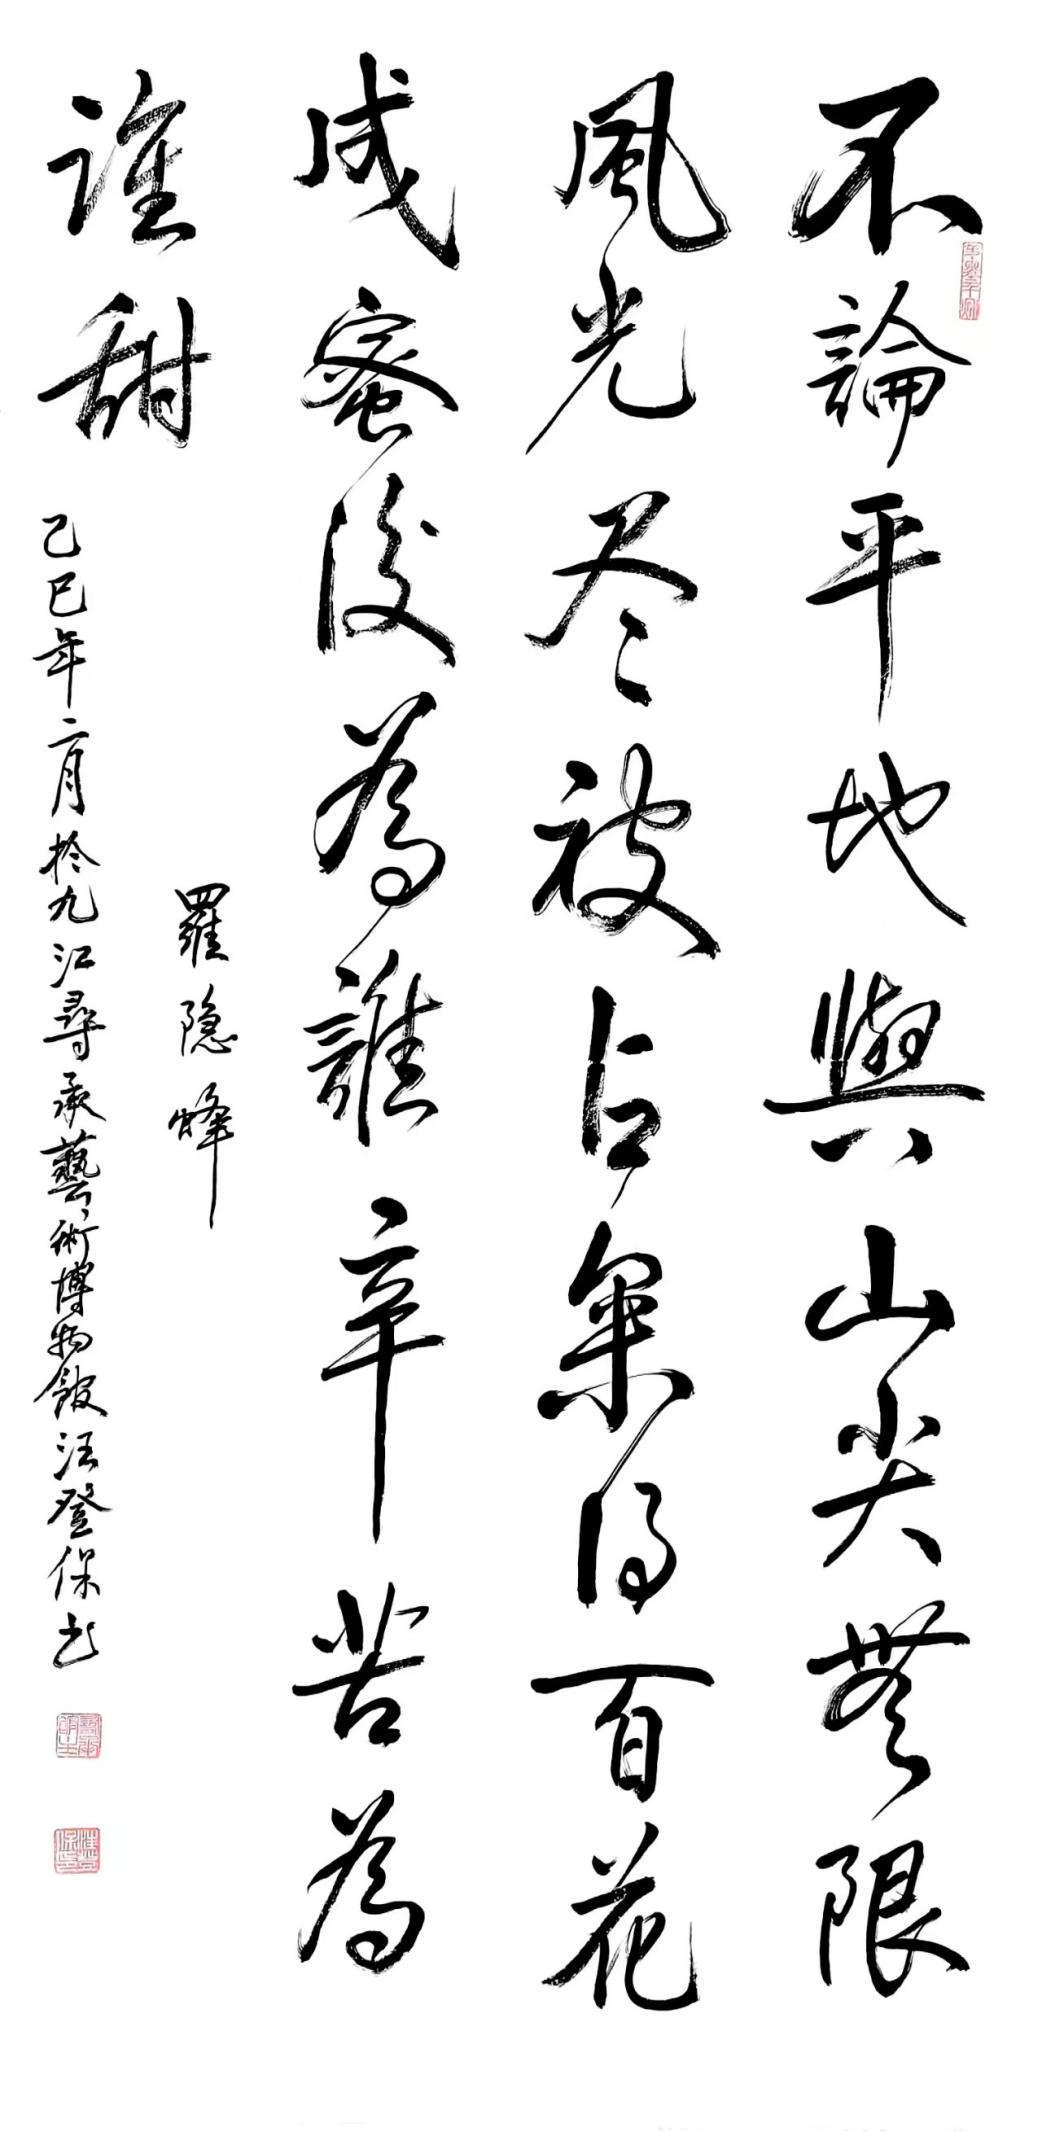 不論平地與山尖無限
風光尽被占采得百花
成蜜後為誰辛苦為
誰甜
羅隐蜂
乙巳年二月扵九江尋承藝術博物館汪登保书